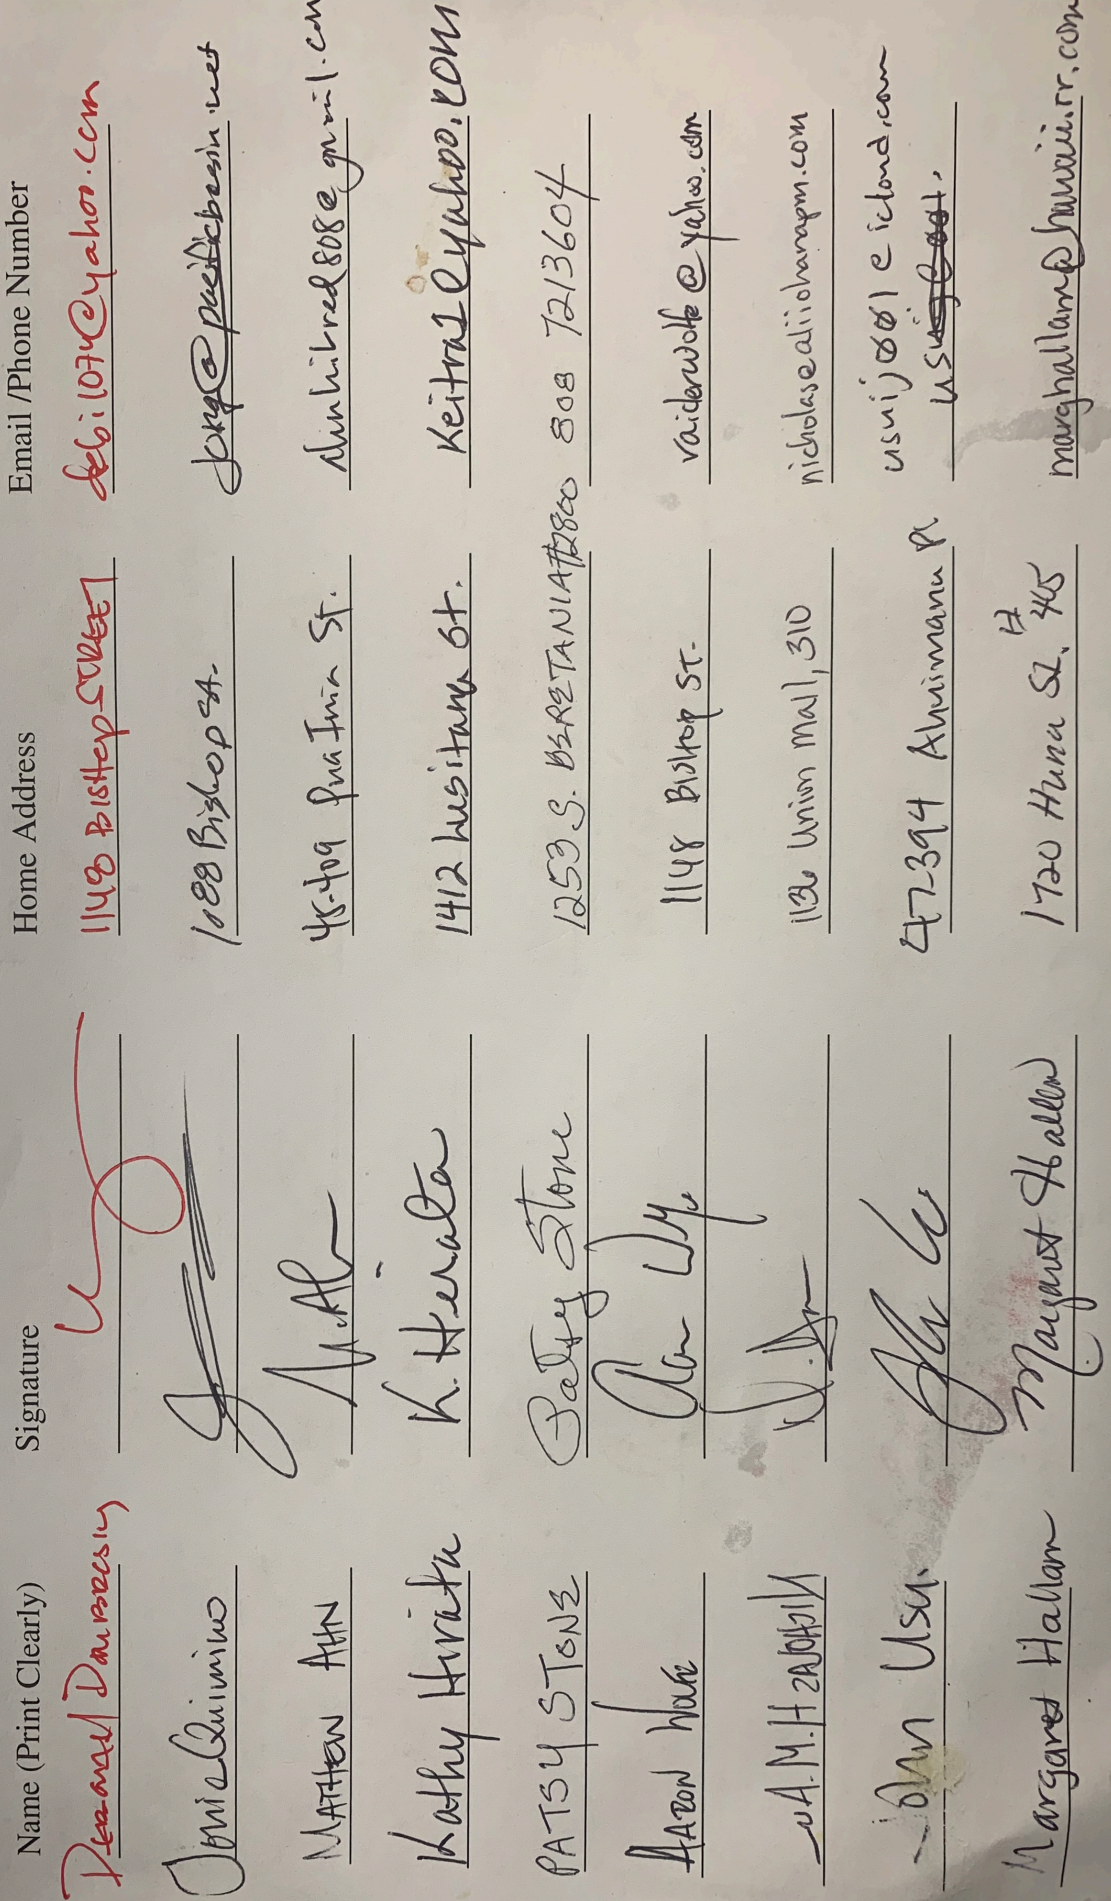 Name (Print Clearly) Signature Home Address Email /Phone Number
1148 BISHOP STREET debi1074@yahoo.com
1088 Bishop St. @pacificbasin.net
MATTHEW AHN 45-409 St.
Kathy Hirata K. Hirata 1412 Lusitana St. Keitra1@yahoo.com
PATSY STONE Patsy Stone 1253 S. BERETANIA #2800 808 7213604
AARON WOLFE 1148 BISHOP ST. raiderwolfe@yahoo.com
1136 Union Mall, 310 nicholasealiiohanapm.com
John Usui 47-394 Ahuimanu Pl usuij001@icloud.com
Margaret Hallam Margaret Hallam 1720 Huna St. # 405 marghallam@hawaii.rr.com